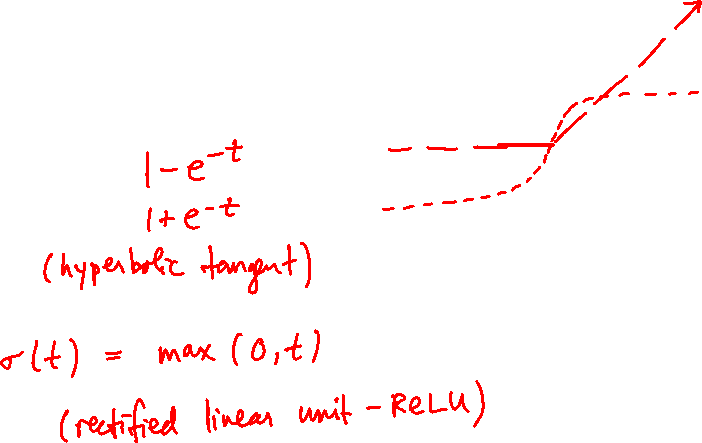 1-e^-t
1+e^-t
(hyperbolic tangent)
σ(t) = max (0,t)
(rectified linear unit - ReLU)